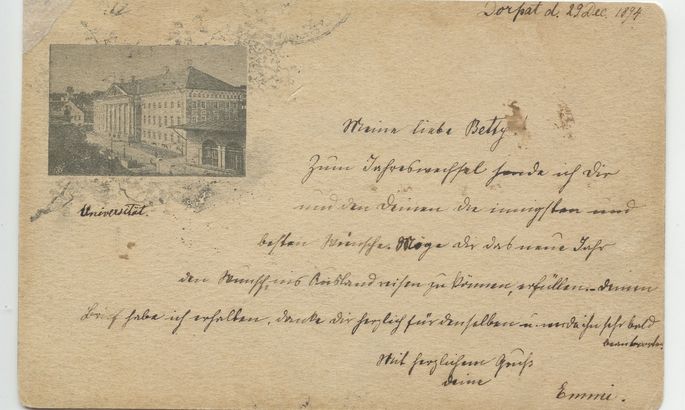 Dorpat d. 29 Dec. 1894
Universität.
Meine liebe Betty
Zum Jahreswechsel sende ich Dir
und den Deinen die innigsten und
besten Wünsche. Möge Dir das neue Jahr
den Wunsch, ins Ausland reisen zu können, erfüllen. – Deinen
Brief habe ich erhalten, danke Dir herzlich für denselben u. werde ihn sehr bald
beantworten.
Mit herzlichem Gruß
Deine
Emmi.